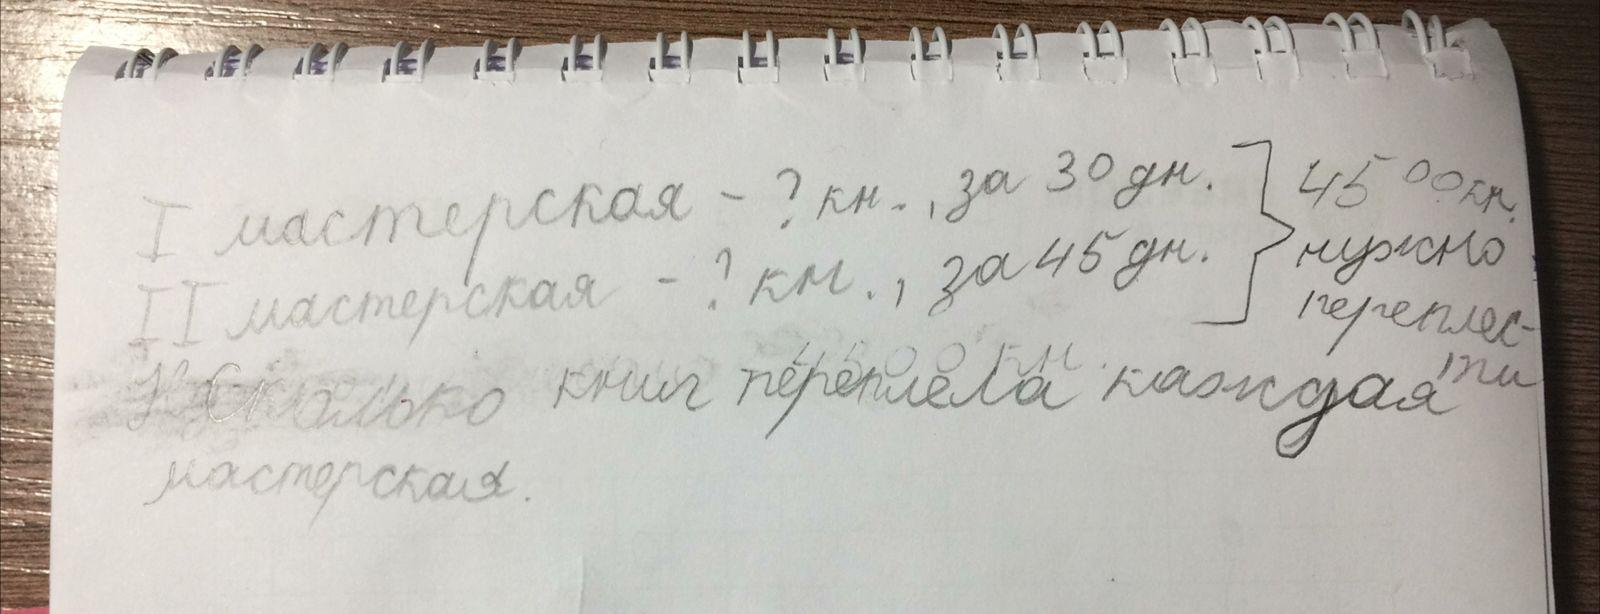 I мастерская - ? кн., за 30 дн.
II мастерская - ? кн., за 45 дн.
4500 кн.
нужно
переплес-
ти
4500 кн.
Сколько книг переплела каждая
мастерская.